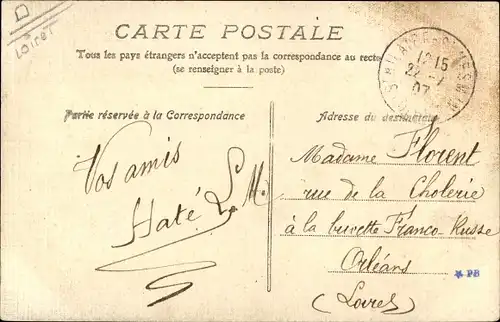 D
Loiret
CARTE POSTALE
Tous les pays étrangers n'acceptent pas la correspondance au recto
(se renseigner à la poste)
12 15
22 -7
07
Partie réservée à la Correspondance
Adresse du destinataire
Vos amis
Haté L. M.
Madame Florent
rue de la Cholerie
à la buvette Franco-Russe
Orléans
(Loiret)
* PB